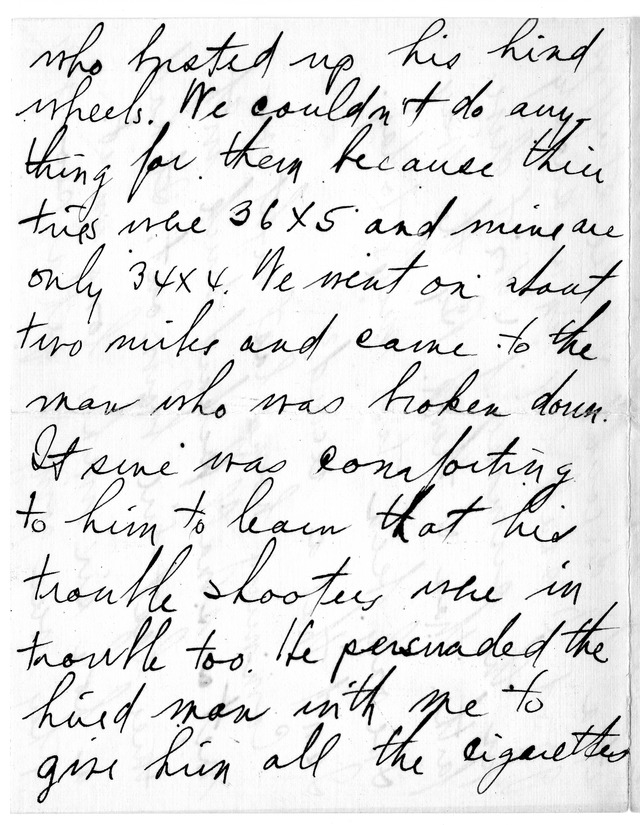 who busted up his hind
wheels. We couldn't do any-
thing for them because thier
tries were 36X5 and mine are
only 34X4. We went on about
two miles and came to the
man who was broken down.
It sure was comforting
to him to learn that his
trouble shooters were in
trouble too. He persuaded the
hired man with me to
give him all the cigarettes